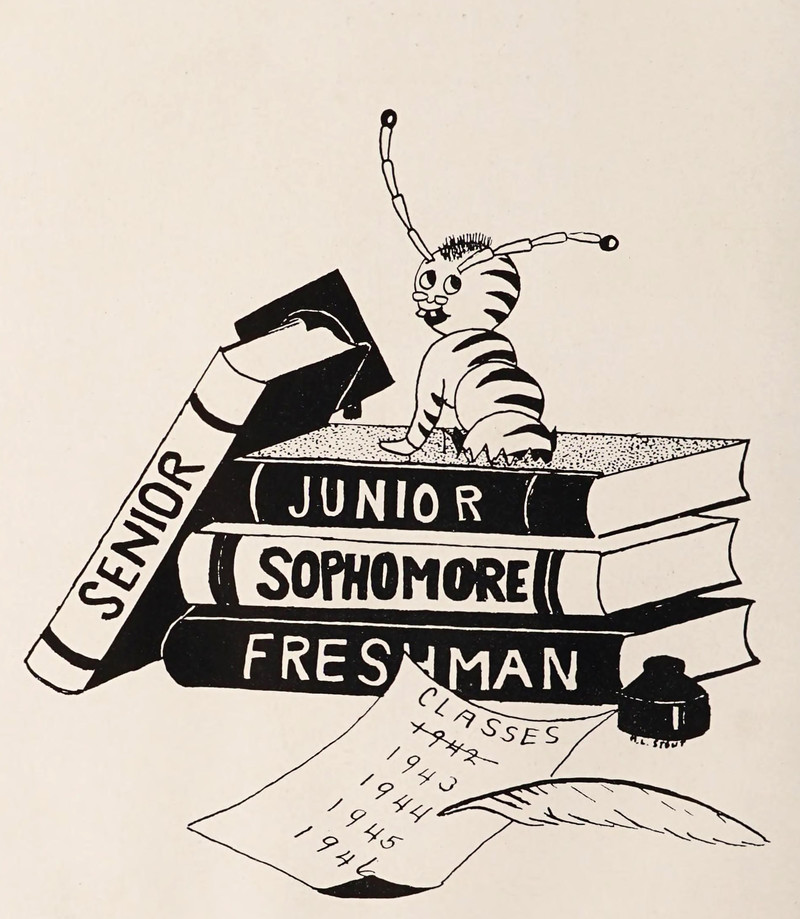 SENIOR
JUNIOR
SOPHOMORE
FRESHMAN
CLASSES
1942
1943
1944
1945
1946
M.L. STOUT